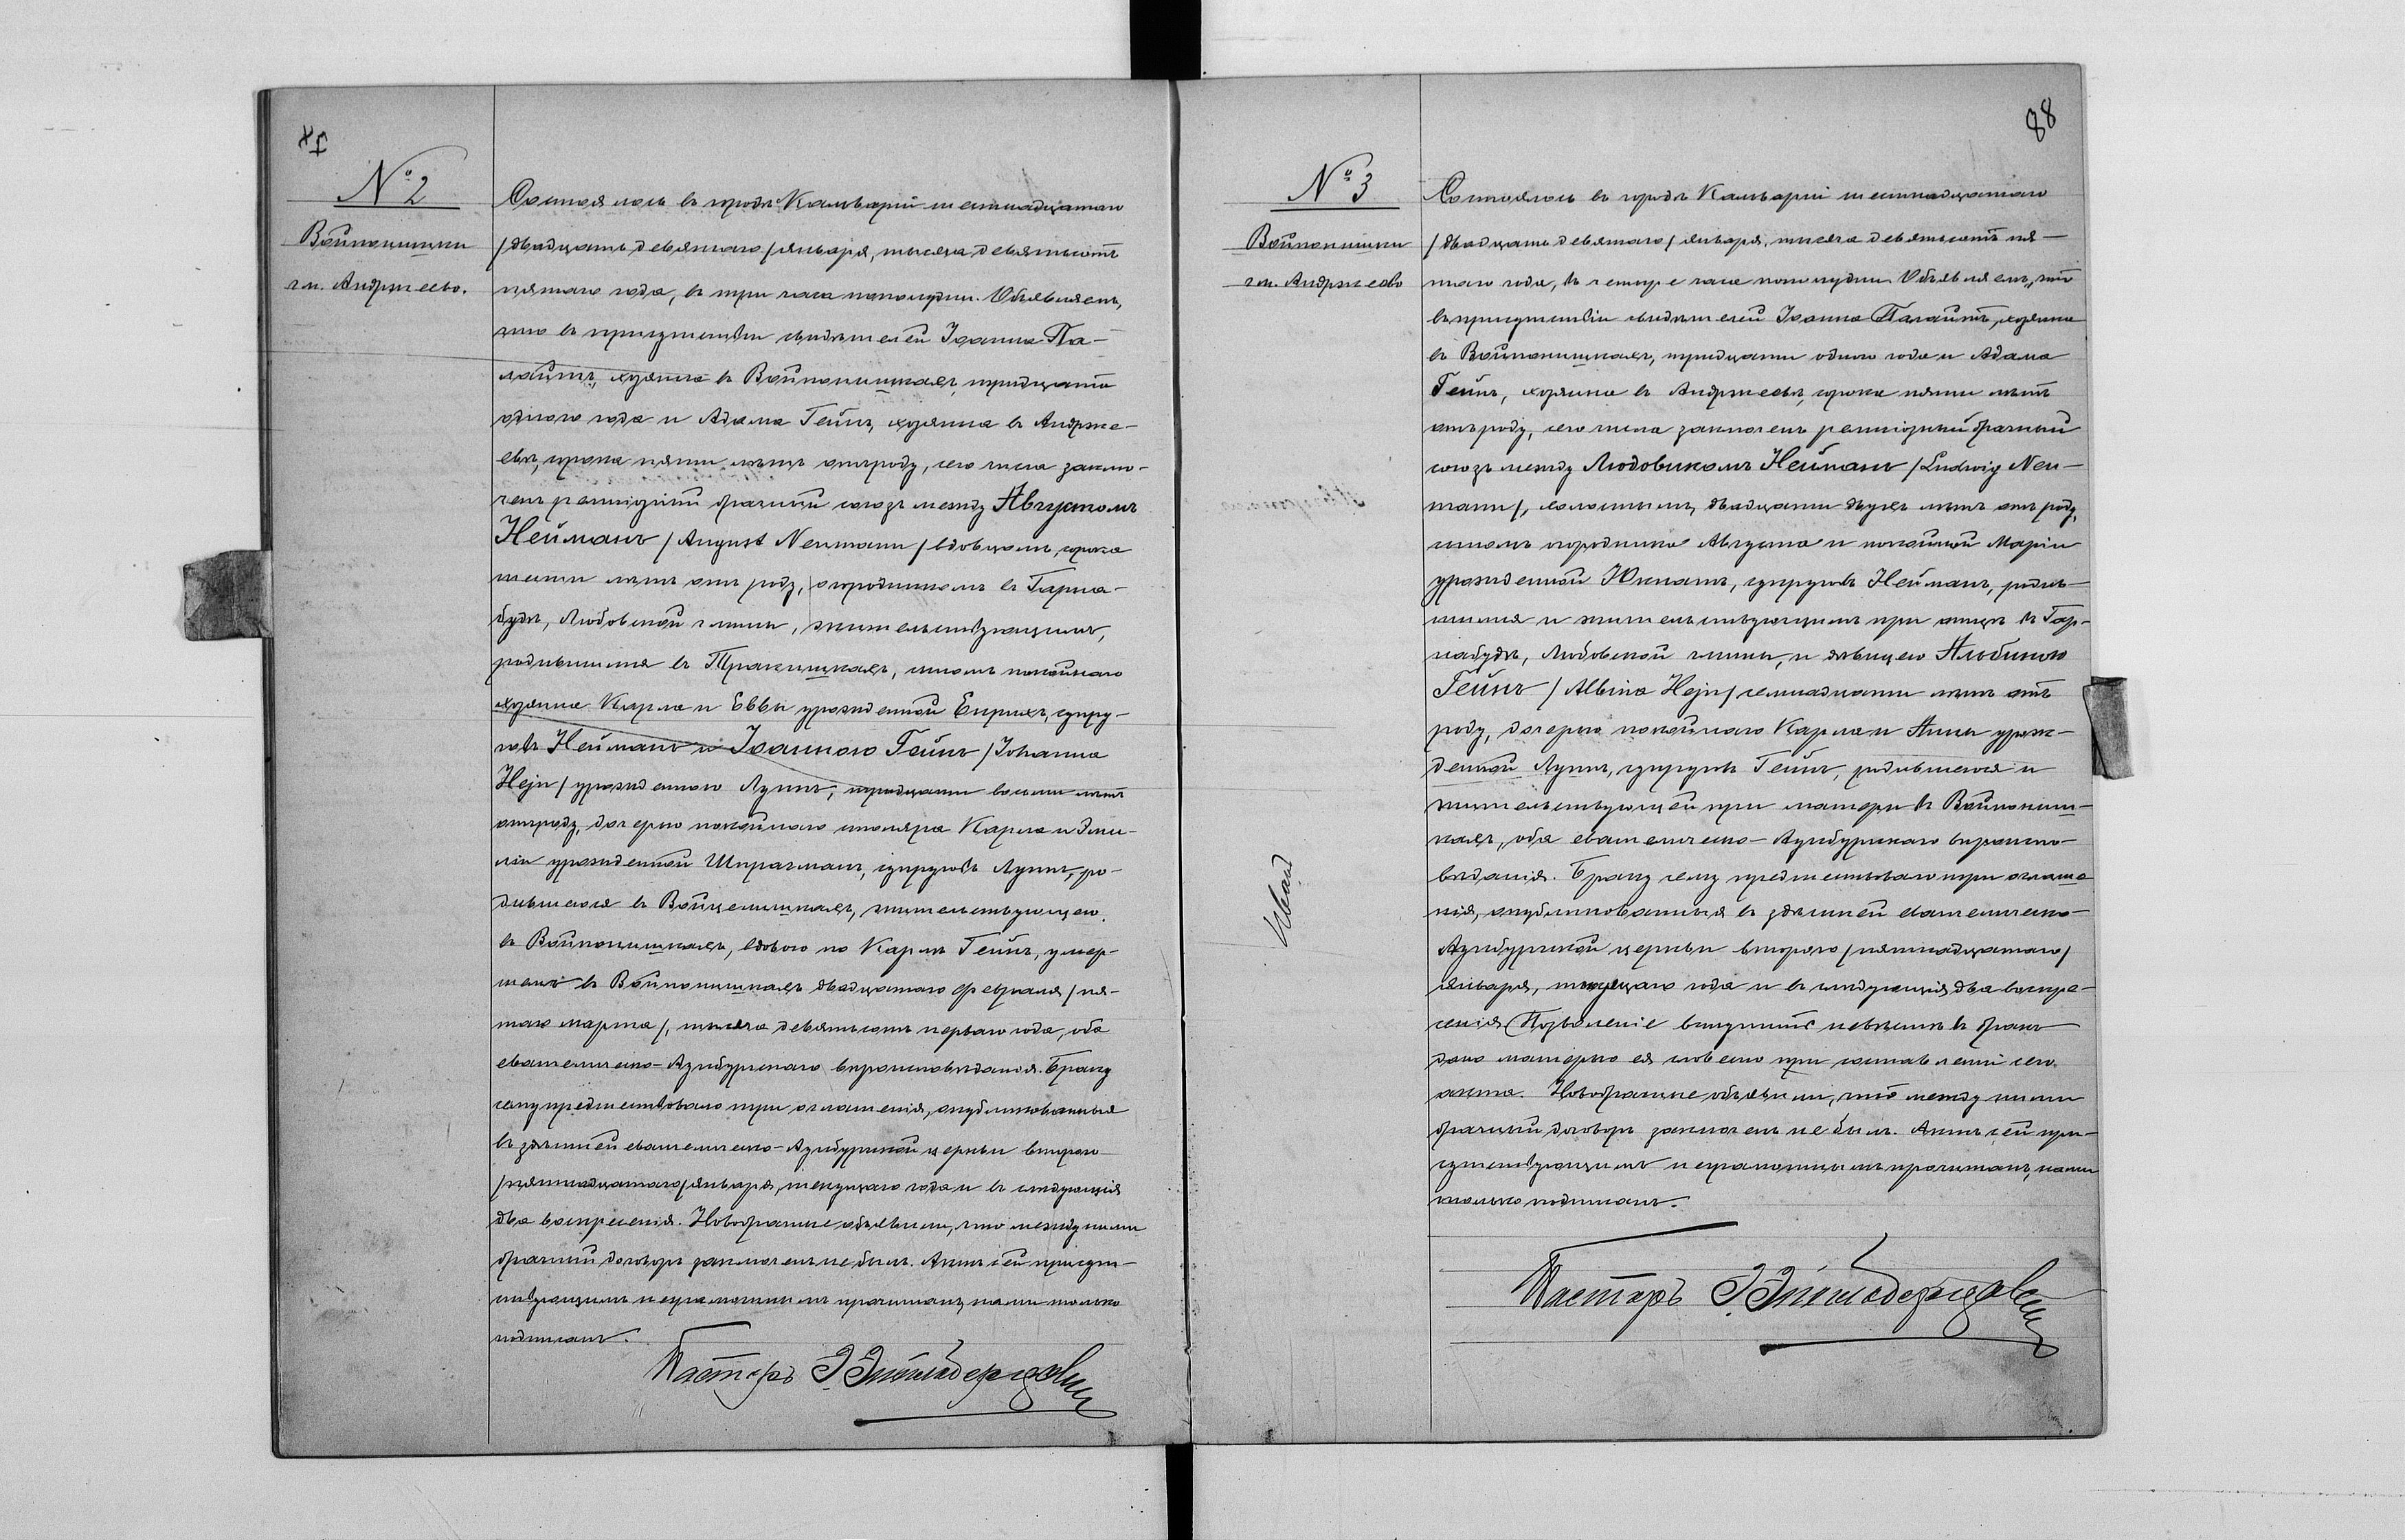 № 2
Войпонишки
гм. Андржеево.
Состоялось въ городѣ Кальваріи шестнадцатаго
/двадцать девятаго/ января, тысяча девятьсотъ
пятаго года, въ три часа пополудни. Объявляемъ,
что въ присутствіи свидѣтелей Іоанна Па-
лайтъ, хозяина въ Войпонишкахъ, тридцати
одного года и Адама Гейнъ, хозяина въ Андрже-
евѣ, сорока пяти лѣтъ отъ роду, сего числа заклю-
ченъ религіозный брачный союзъ между Августомъ
Нейманъ /August Neumann/ вдовцомъ, сорока
шести лѣтъ отъ роду, огородникомъ въ Гарна-
будѣ, Любовской гмины, жительствующимъ,
родившимся въ Тракишкахъ, сыномъ покойнаго
хозяина Карла и Еввы урожденной Енрихъ, супру-
говъ Нейманъ и Іоанною Гейнъ /Johanna
Hejn/ урожденною Лунъ, тридцати восьми лѣтъ
отъ роду, дочерью покойнаго столяра Карла и Эми-
ліи урожденной Шпрагманъ, супруговъ Лунъ, ро-
дившеюся въ Войцелишкахъ, жительствующею
въ Войпонишкахъ, вдовою по Карлѣ Гейнъ, умер-
шемъ въ Войпонишкахъ двадцатаго февраля /пя-
таго марта/, тысяча девятьсотъ перваго года, оба
евангелическо-Аугсбургскаго вѣроисповѣданія. Браку
сему предшествовало три оглашенія, опубликованныя
въ здѣшней евангелическо-Аугсбургской церкви второго
/пятнадцатаго/ января, текущаго года и въ слѣдующія
два воскресенія. Новобрачные объявили, что между ними
брачный договоръ заключенъ не былъ. Актъ сей присут-
ствующимъ неграмотнымъ прочитанъ, нами только
подписанъ.
Пасторъ
88
№ 3
Войпонишки
гм. Андржеево
Состоялось въ городѣ Кальваріи шестнадцатаго
/двадцать девятаго/ января, тысяча девятьсотъ пя-
таго года, въ четыре часа пополудни. Объявляемъ, что
въ присутствіи свидѣтелей Іоанна Палайтъ, хозяина
въ Войпонишкахъ, тридцати одного года и Адама
Гейнъ, хозяина въ Андржеевѣ, сорока пяти лѣтъ
отъ роду, сего числа заключенъ религіозный брачный
союзъ между Людовикомъ Нейманъ /Ludwig Neu-
mann/, холостымъ, двадцати двухъ лѣтъ отъ роду,
сыномъ огородника Августа и покойной Маріи
урожденной Юкнатъ, супруговъ Нейманъ, родив-
шимся и жительствующимъ при отцѣ въ Гар-
набудѣ, Любовской гмины, и дѣвицею Альбиною
Гейнъ /Albina Hejn/ семнадцати лѣтъ отъ
роду, дочерью покойнаго Карла и Анны урож-
денной Лунъ, супруговъ Гейнъ, родившеюся и
жительствующей при матери въ Войпониш-
кахъ, оба евангелическо-Аугсбургскаго вѣроиспо-
вѣданія. Браку сему предшествовало три оглаше-
нія, опубликованныя въ здѣшней евангелическо-
Аугсбургской церкви второго /пятнадцатаго/
января, текущаго года и въ слѣдующія два воскре-
сенія. Позволеніе вступить невѣстѣ въ бракъ
дано матерью ея словесно при составленіи сего
акта. Новобрачные объявили, что между ними
брачный договоръ заключенъ не былъ. Актъ сей при-
сутствующимъ неграмотнымъ прочитанъ, нами
только подписанъ.
Пасторъ